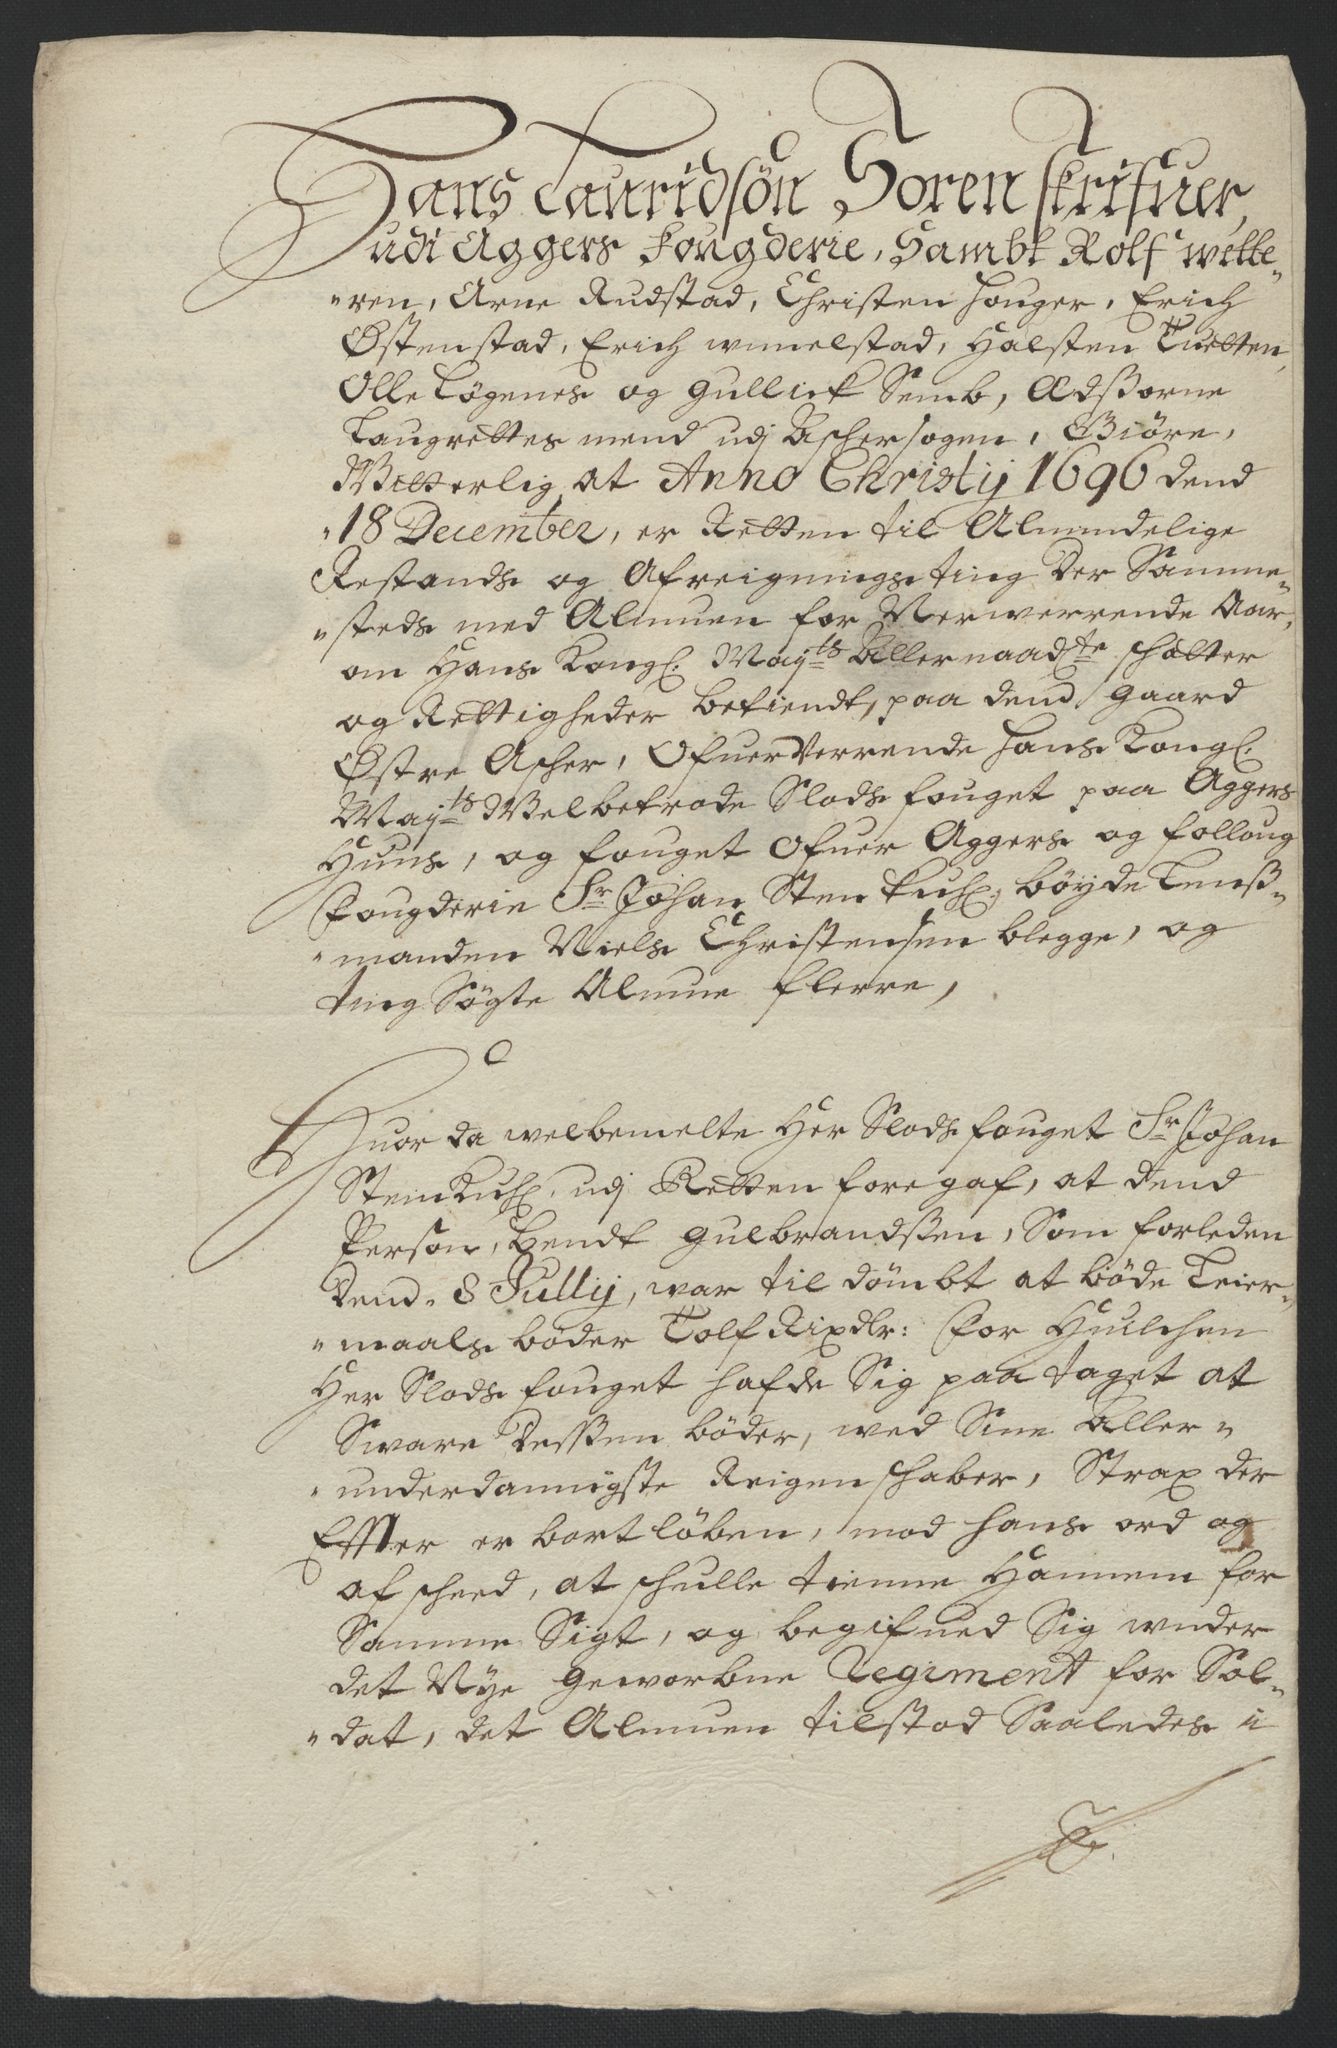 Hans Lauridsön Soren skrifuer,
udi Aggers Fougderie, Sambt Rolf wettbe-
-ren, Arne Rudstad, Christen Houger, Erich
Østenstad, Erich wimelstad, Halsten Tuetten,
Olle Løgenes og Gullick Semb, Edsorne
Laugrettes mend udj Aschersogen, Giöre,
Witterlig at Anno Christij 1696 dend
18 December, er Retten til Almindelige
Restands og Afreignings ting der Samme-
-steds med Almuen for Nerwerrende Aar,
om Hans Kongl. Mayts Allernaadte schatter
og Rettigheder betiendt, paa dend gaard
Østre Ascher, Ofuerverrende Hans Kongl.
Mayts Welbetrode Slods fouget paa Aggers
Huus, og fouget Ofuer Aggers og Folloug
Fougderie Sr Johan Stenkuhl, böyde Lenß-
-manden Niels Christensen blegge, og
ting Sögte Almue flerre,
Huor da welbemelte Her Slods fouget Sr Johan
Steinkuhl, udj Retten foregaf, at dend
Person, Bendt Gulbrandßen, Som forleden
dend 8 Jullij, war til dömbt at böde Leier-
-maals böder Tolf Rixdlr: for Huilchen
Her Slods fouget hafde Sig paa taget at
Sware deßen böder, wed Sine Aller-
-underdannigste Reigenschaber, Strax der
Effter er bort löben, mod hans ord og
afscheed, at schulle tienne Hannem for
Samme Sigt, og begifued Sig under
det Nye geworbne Regiment for Sol-
-dat, det Almuen tilstod Saaledes i